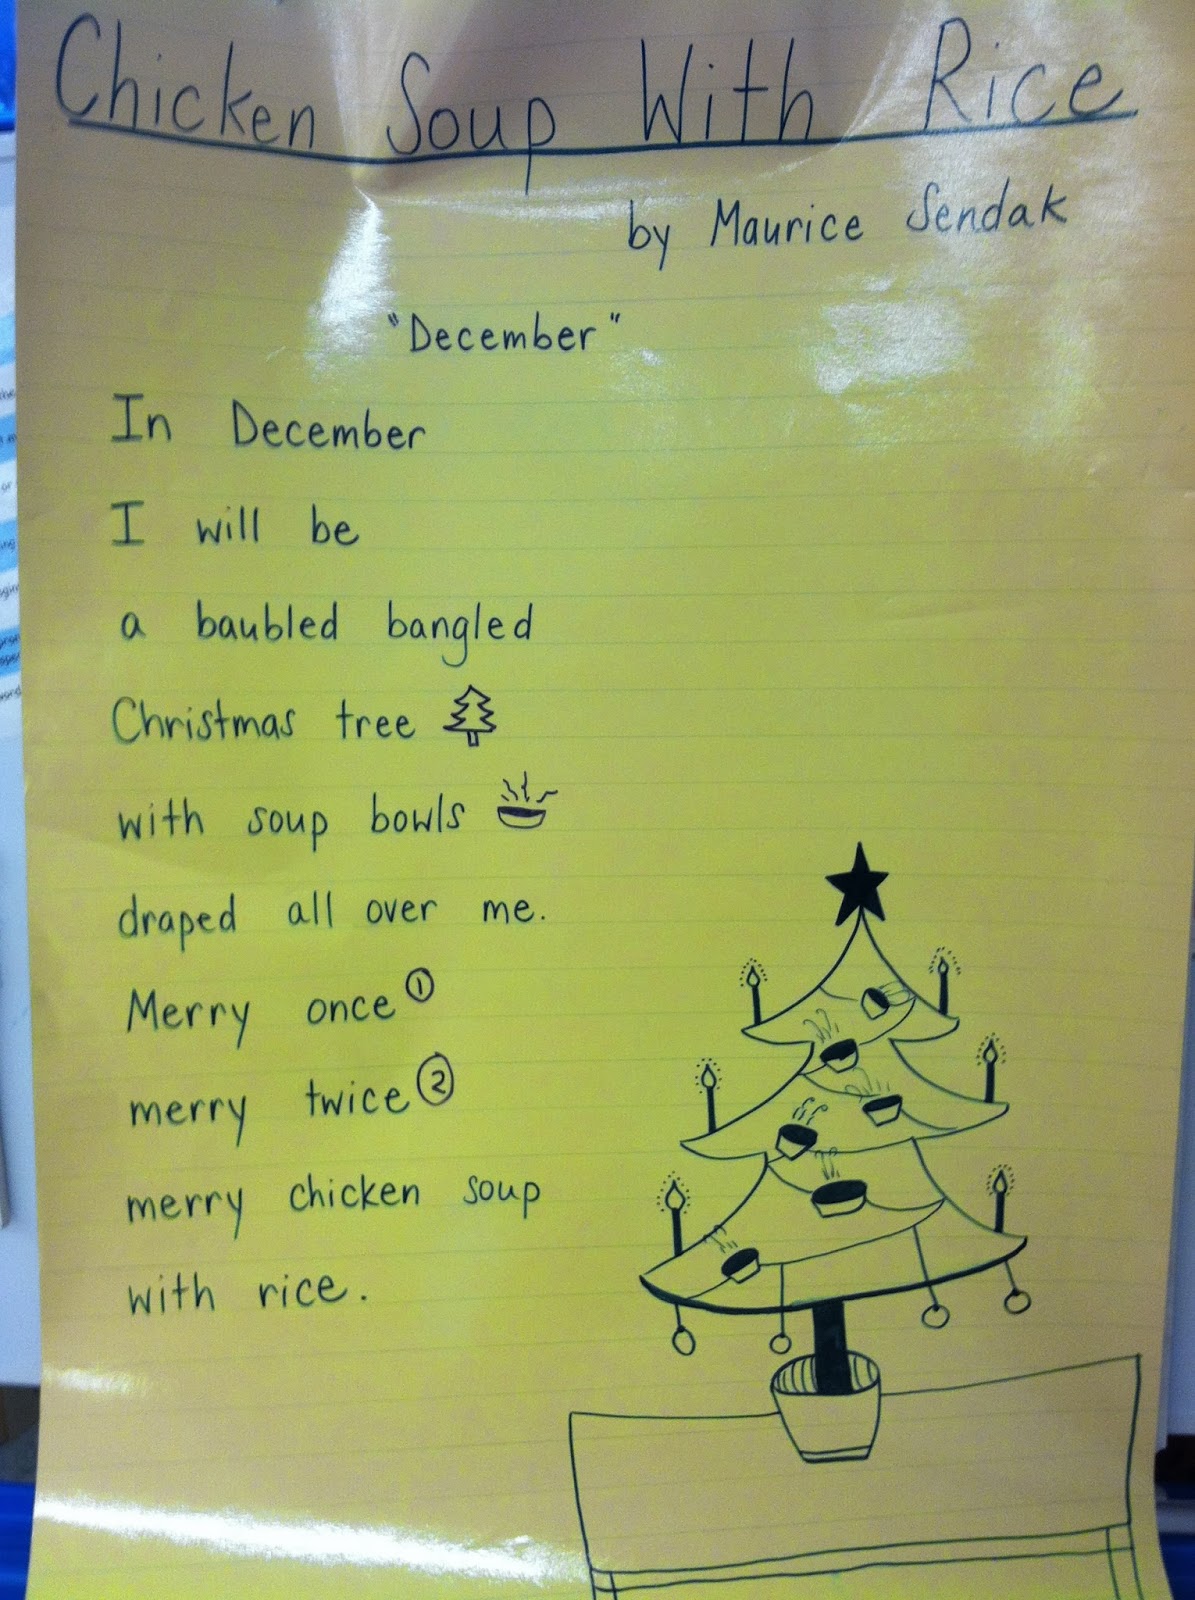 Chicken Soup With Rice
by Maurice Sendak
"December"
In December
I will be
a baubled bangled
Christmas tree
with soup bowls
draped all over me.
Merry once 1
merry twice 2
merry chicken soup
with rice.